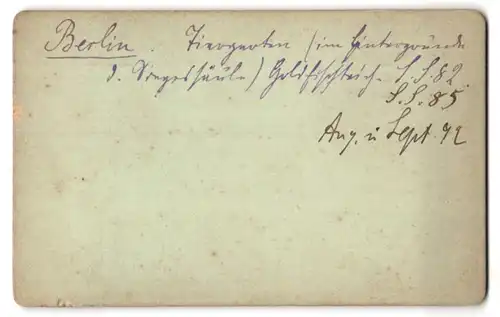 Berlin. Tiergarten (im Hintergrunde
d. Siegessäule) Goldfischteich. S. S. 82
S. S. 85
Aug. u Sept. 92